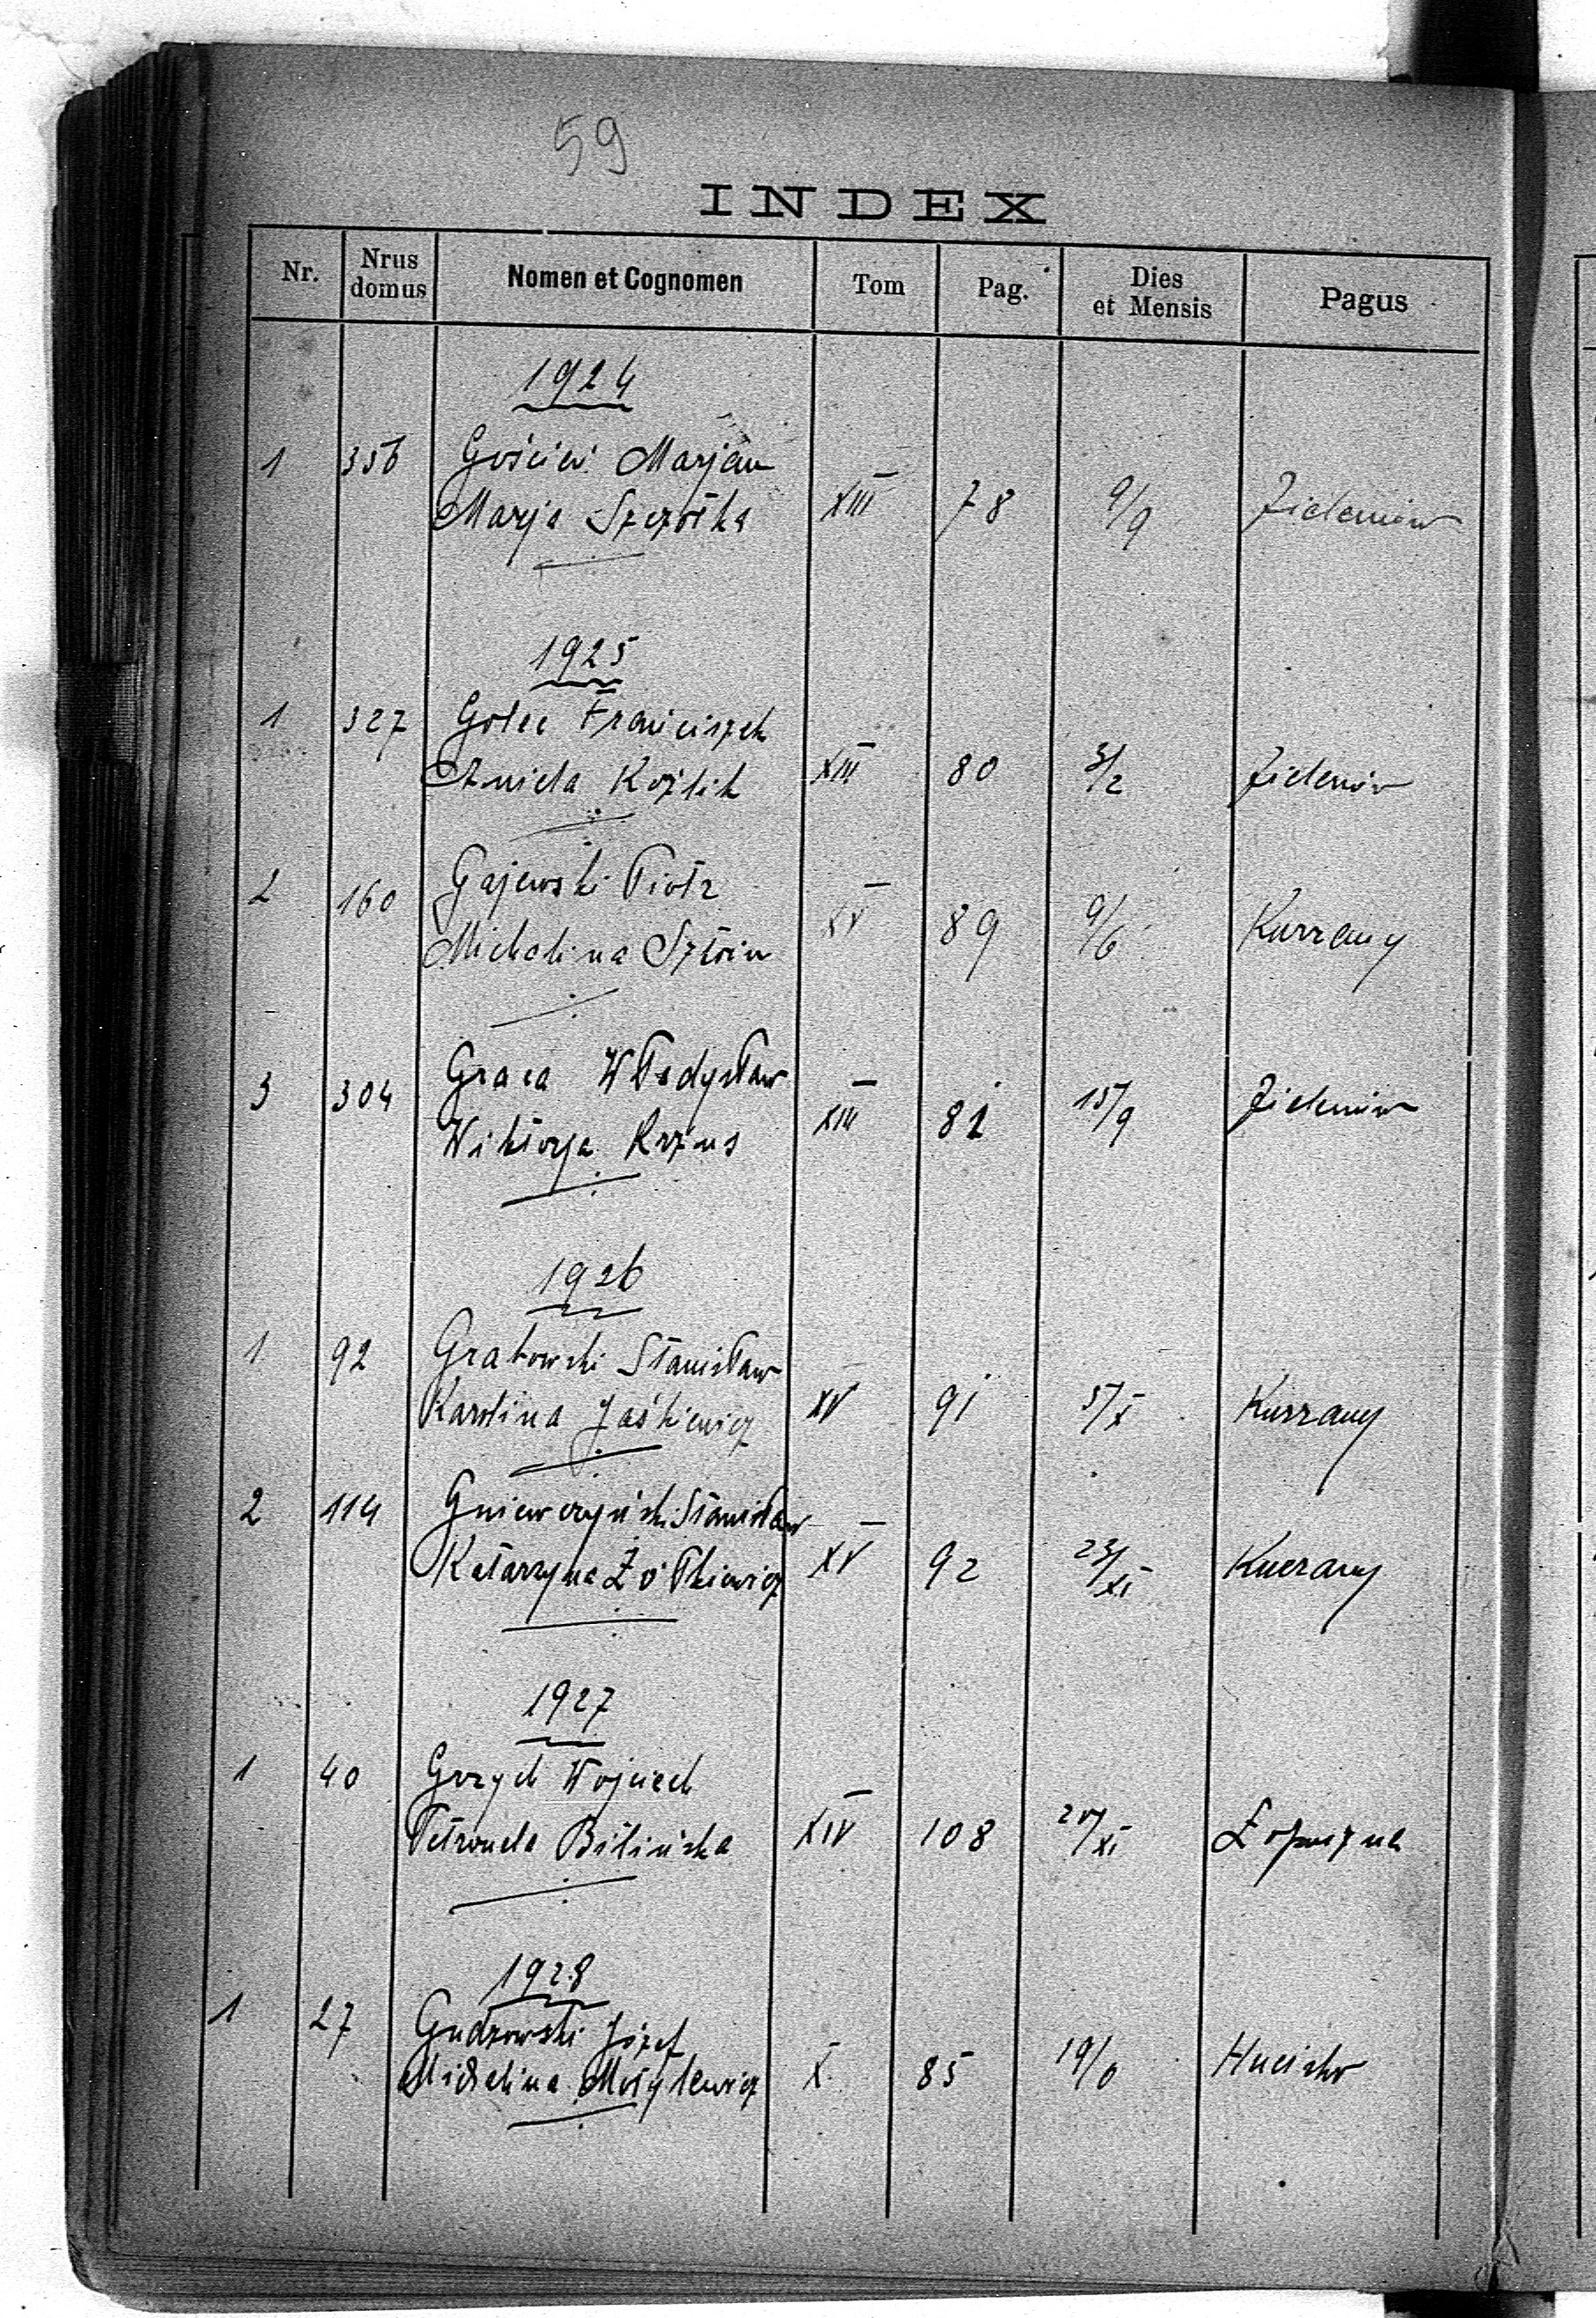 59
INDEX
Nr. Nrus domus Nomen et Cognomen Tom Pag. Dies et Mensis Pagus
1924
1 356 Marjan
Marja XIII 78 9/9
1925
1 327 Golec Franciszek
Aniela Koźlik XIII 80 3/2 Zieleniów
2 160 Gajewski Piotr
Michalina XV 89 9/6 Kurzany
3 304 Graca Władysław
Wiktorja XIII 81 15/9 Zieleniów
1926
1 92 Grabowski Stanisław
Karolina Jaśkiewicz XV 91 5/X Kurzany
2 114 Gniewczyński Stanisław
Katarzyna Żółkiewicz XV 92 23/XI Kurzany
1927
1 40 Grzych Wojciech
Petronela Bilińska XIV 108 /XI
1928
1 27 Gudzowski Józef
Michalina X 85 Hucisko